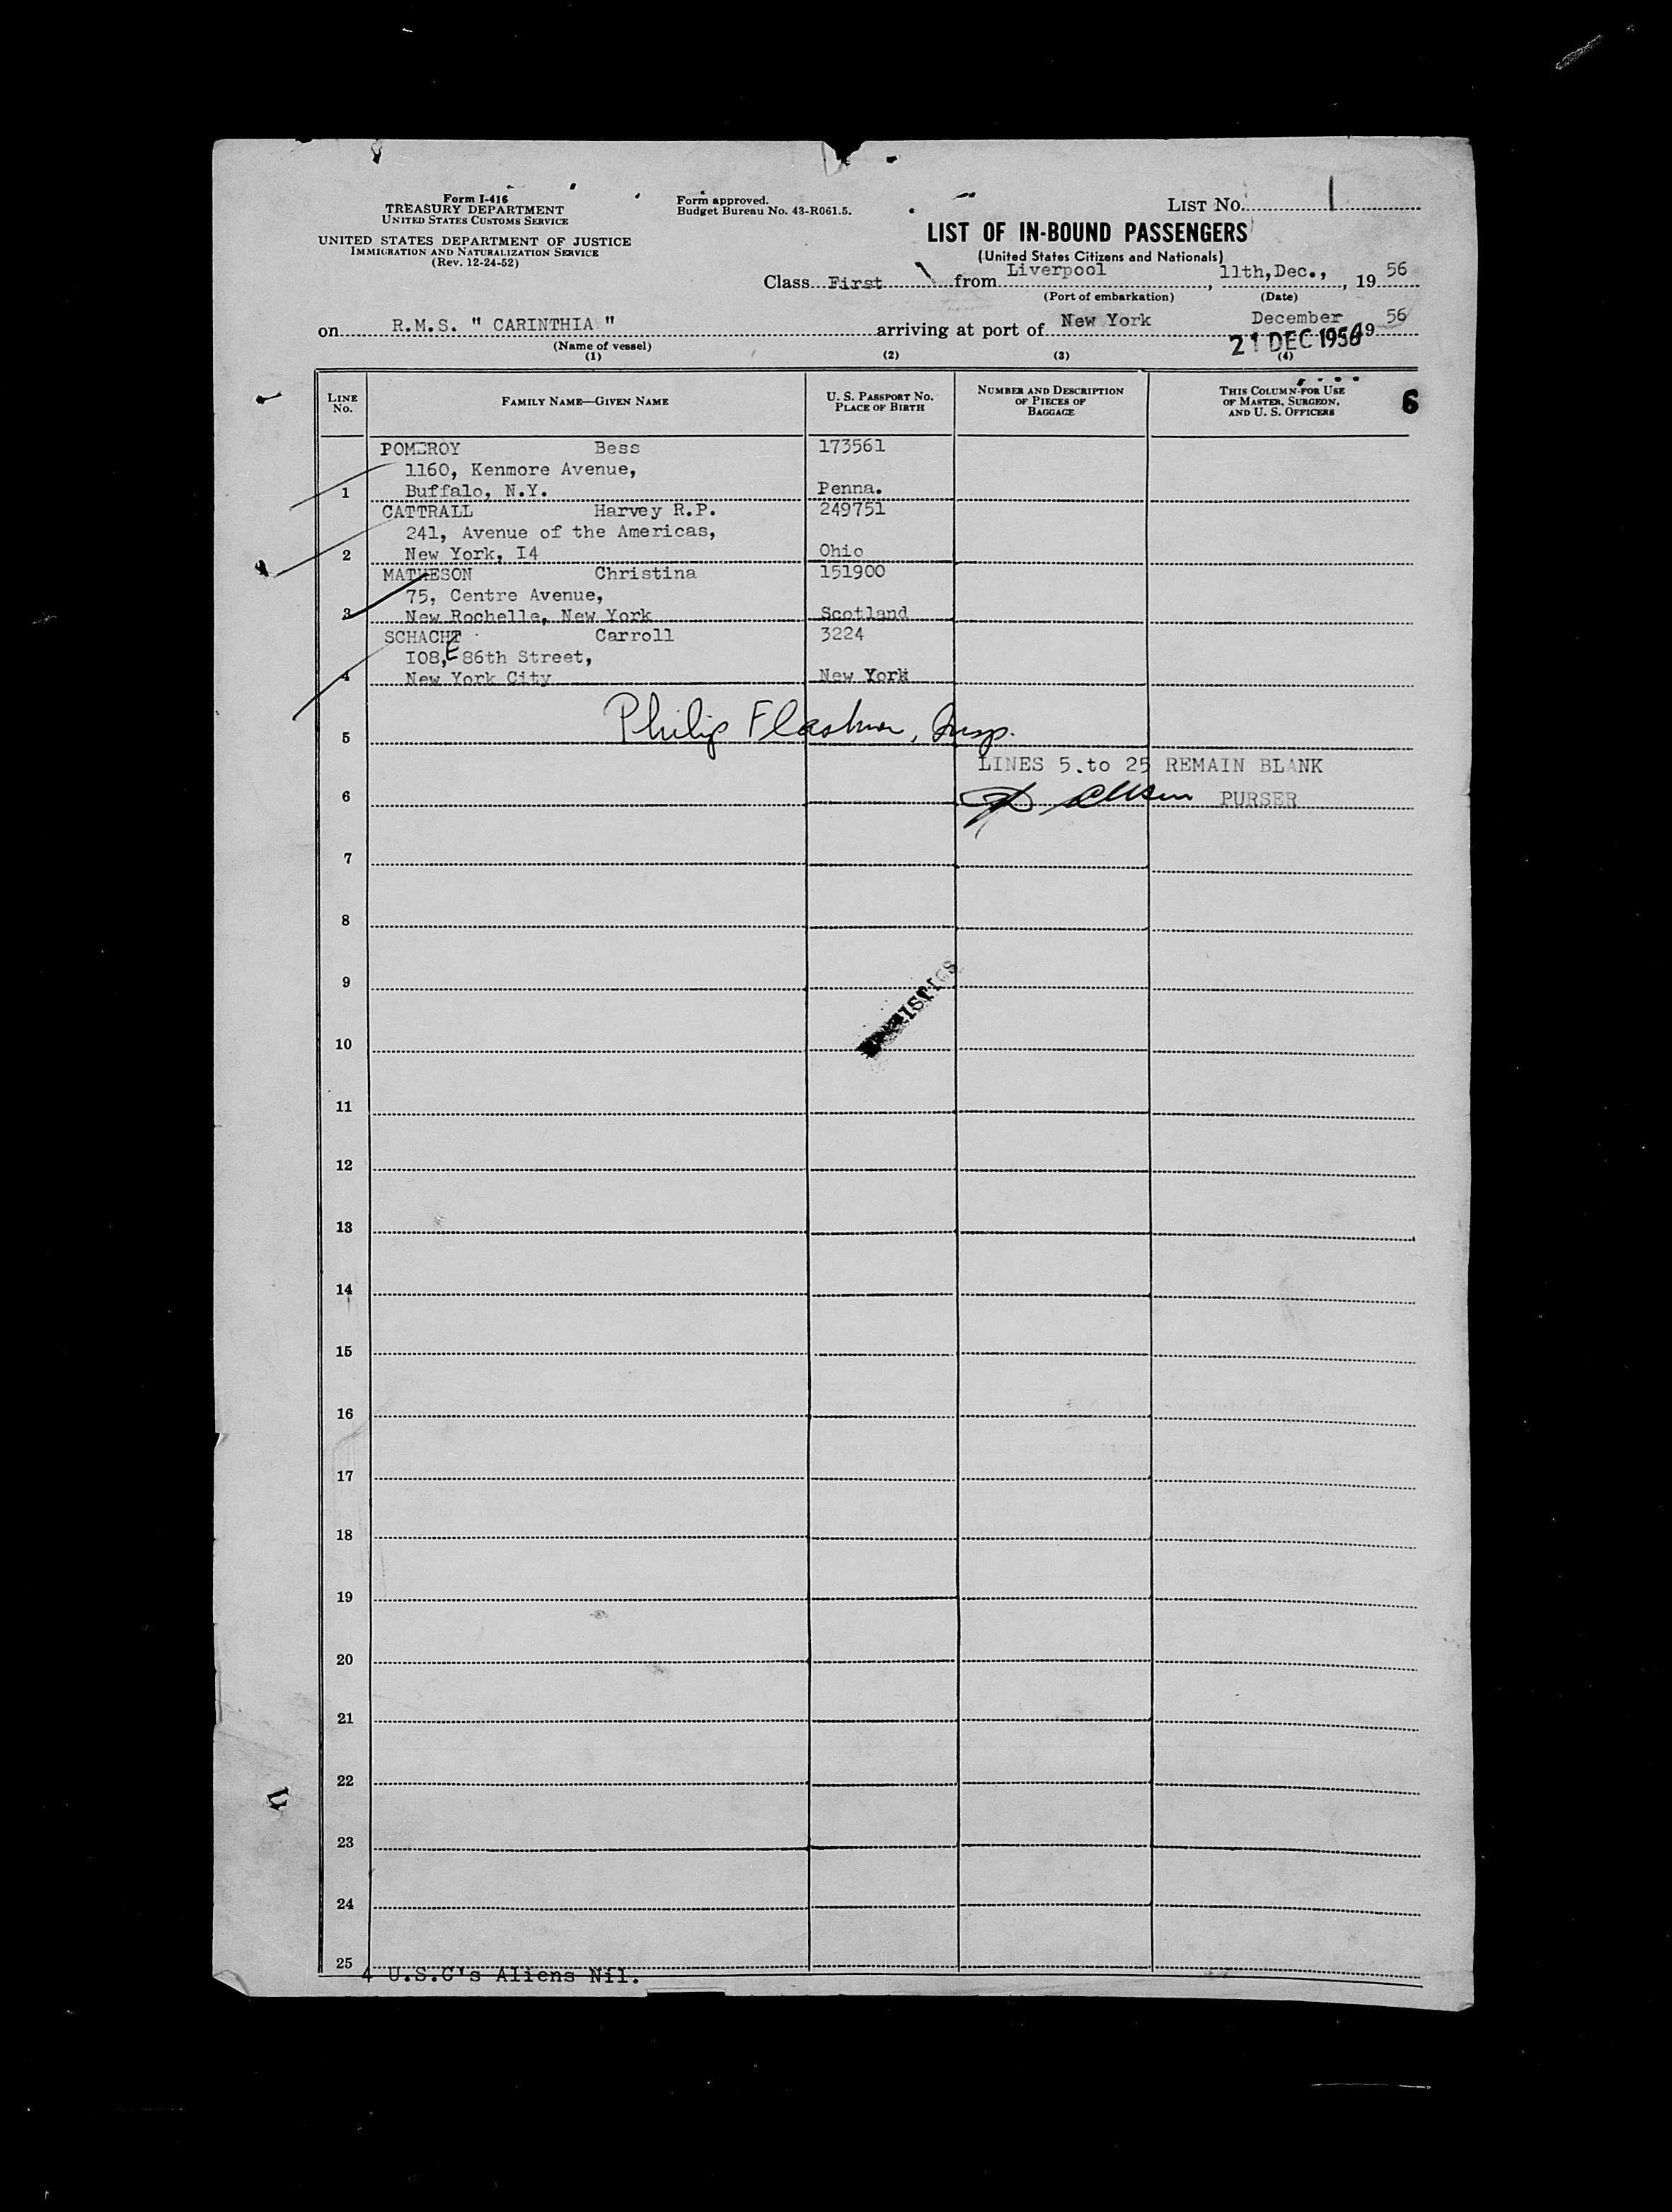 Form I-416
TREASURY DEPARTMENT
UNITED STATES CUSTOMS SERVICE
UNITED STATES DEPARTMENT OF JUSTICE
IMMIGRATION AND NATURALIZATION SERVICE
(Rev. 12-24-52)
Form approved.
Budget Bureau No. 43-R061.5.
LIST No. 1
LIST OF IN-BOUND PASSENGERS
(United States Citizens and Nationals)
Class First from Liverpool, 11th,Dec., , 19 56
(Port of embarkation) (Date)
on R.M.S. " CARINTHIA " arriving at port of New York December 19 56
21 DEC 1956
(Name of vessel)
(1) (2) (3) (4)
LINE No. FAMILY NAME—GIVEN NAME U. S. PASSPORT NO. PLACE OF BIRTH NUMBER AND DESCRIPTION OF PIECES OF BAGGAGE THIS COLUMN FOR USE OF MASTER, SURGEON, AND U. S. OFFICERS 6
POMEROY Bess 173561
1160, Kenmore Avenue,
1 Buffalo, N.Y. Penna.
CATTRALL Harvey R.P. 249751
241, Avenue of the Americas,
2 New York, I4 Ohio
MATHESON Christina 151900
75, Centre Avenue,
3 New Rochelle, New York Scotland
SCHACHT Carroll 3224
I08, E 86th Street,
4 New York City New York
Philip Flashner, Insp.
5
LINES 5.to 25 REMAIN BLANK
6 PURSER
7
8
9
10
11
12
13
14
15
16
17
18
19
20
21
22
23
24
25
4 U.S.C's Aliens Nil.